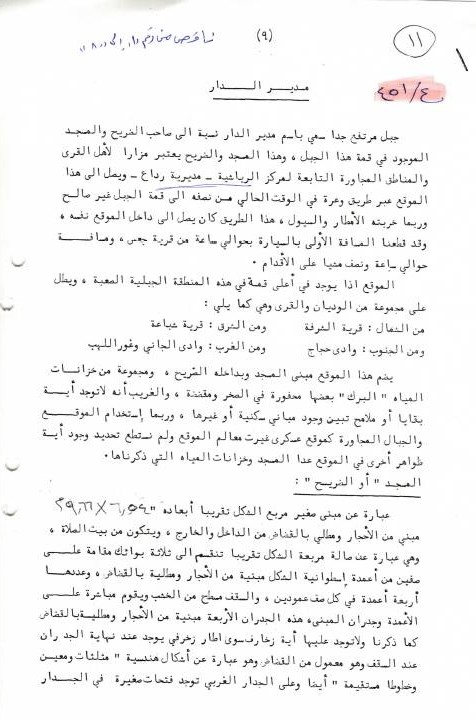 (٩)
١١
٤٥١/٤
مدير الدار
جبل مرتفع جدا سمي باسم مدير الدار نسبة الى صاحب الضريح والمسجد
الموجود في قمة هذا الجبل ، وهذا المسجد والضريح يعتبر مزارا لأهل القرى
والمناطق المجاورة التابعة لمركز الرياشية - مديرية رداع - ويصل الى هذا
الموقع عبر طريق وعرة في الوقت الحالي من نصفه الى قمة الجبل غير صالح
وربما خربته الأمطار والسيول ، هذا الطريق كان يصل الى داخل الموقع نفسه ،
وقد قطعنا المسافة الأولى بالسيارة بحوالي ساعة من قرية جعس ، ومسافة
حوالي ساعة ونصف مشيا على الأقدام .
الموقع اذا يوجد في أعلى قمة في هذه المنطقة الجبلية الصعبة ، ويطل
على مجموعة من الوديان والقرى وهي كما يلي :
من الشمال : قرية الشرفة ومن الشرق : قرية شباعة
ومن الجنوب : وادى حجاج ومن الغرب : وادى الجاني وغور اللهب
يضم هذا الموقع مبنى المسجد وبداخله الضريح ، ومجموعة من خزانات
المياه " البرك " بعضها محفورة في الصخر ومقضضة ، والغريب أنه لاتوجد أية
بقايا أو ملامح تبين وجود مباني سكنية أو غيرها ، وربما إستخدام الموقع
والجبال المجاورة كموقع عسكرى غيرت معالم الموقع ولم نستطع تحديد وجود أية
ظواهر أخرى في الموقع عدا المسجد وخزانات المياه التي ذكرناها .
المسجد " أو الضريح " :
عبارة عن مبنى صغير مربع الشكل تقريبا أبعاده "
مبني من الأحجار ومطلي بالقضاض من الداخل والخارج ، ويتكون من بيت الصلاة ،
وهي عبارة عن صالة مربعة الشكل تقريبا تنقسم الى ثلاثة بوائك مقامة على
صفين من أعمدة إسطوانية الشكل مبنية من الأحجار ومطلية بالقضاض ، وعددها
أربعة أعمدة في كل صف عمودين ، والسقف مسطح من الخشب ويقوم مباشرة على
الأعمدة وجدران المبنى، هذه الجدران الأربعة مبنية من الأحجار ومطلية بالقضاض
كما ذكرنا ولاتوجد عليها أية زخارف سوى اطار زخرفي يوجد عند نهاية الجدران
عند السقف وهو معمول من القضاض وهو عبارة عن أشكال هندسية " مثلثات ومعين
وخطوطا مستقيمة " أيضا وعلى الجدار الغربي توجد فتحات صغيرة في الجدار